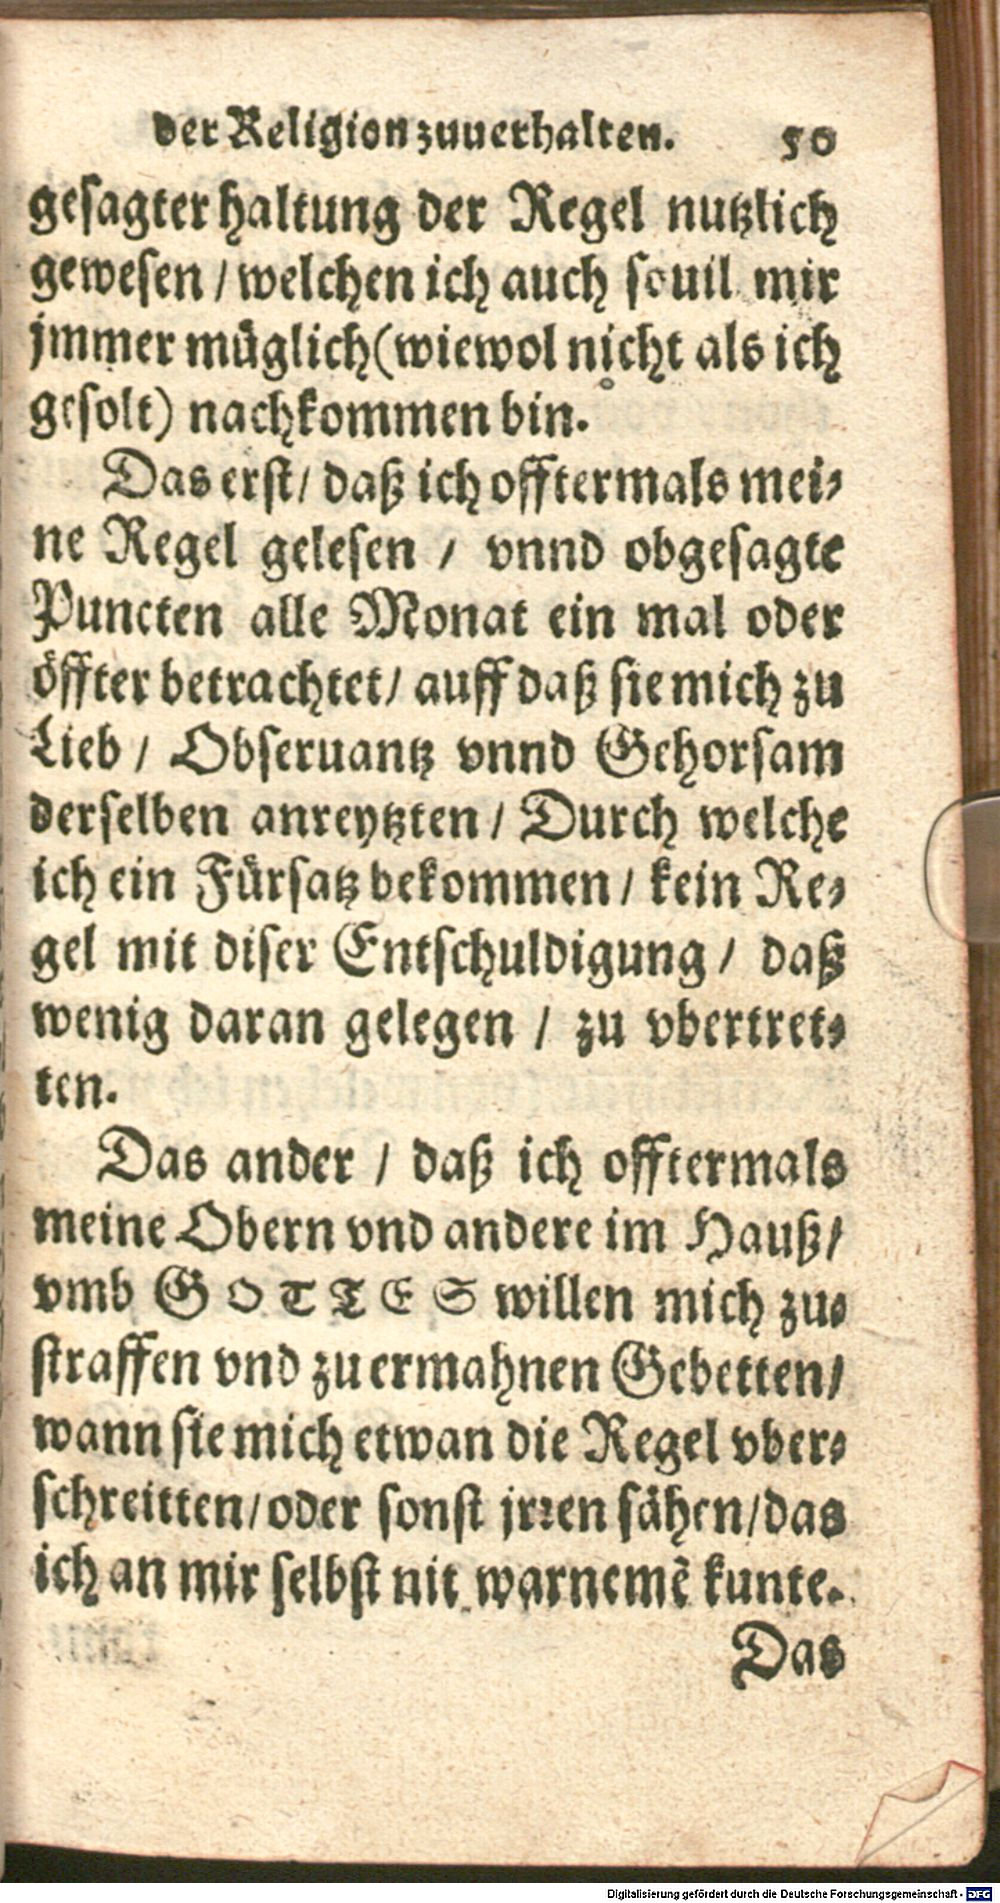 der Religion zuuerhalten. 50
gesagter haltung der Regel nutzlich
gewesen / welchen ich auch souil mir
jmmer müglich (wiewol nicht als ich
gesolt) nachkommen bin.
Das erst / daß ich offtermals mei-
ne Regel gelesen / vnnd obgesagte
Puncten alle Monat ein mal oder
öffter betrachtet / auff daß sie mich zu
Lieb / Obseruantz vnnd Gehorsam
derselben anreytzten / Durch welche
ich ein Fürsatz bekommen / kein Re-
gel mit diser Entschuldigung / daß
wenig daran gelegen / zu vbertret-
ten.
Das ander / daß ich offtermals
meine Obern vnd andere im Hauß /
vmb GOTTES willen mich zu-
straffen vnd zu ermahnen Gebetten /
wann sie mich etwan die Regel vber-
schreitten / oder sonst jrren sähen / das
ich an mir selbst nit warnemẽ kunte.
Das
Digitalisierung gefördert durch die Deutsche Forschungsgemeinschaft - DFG